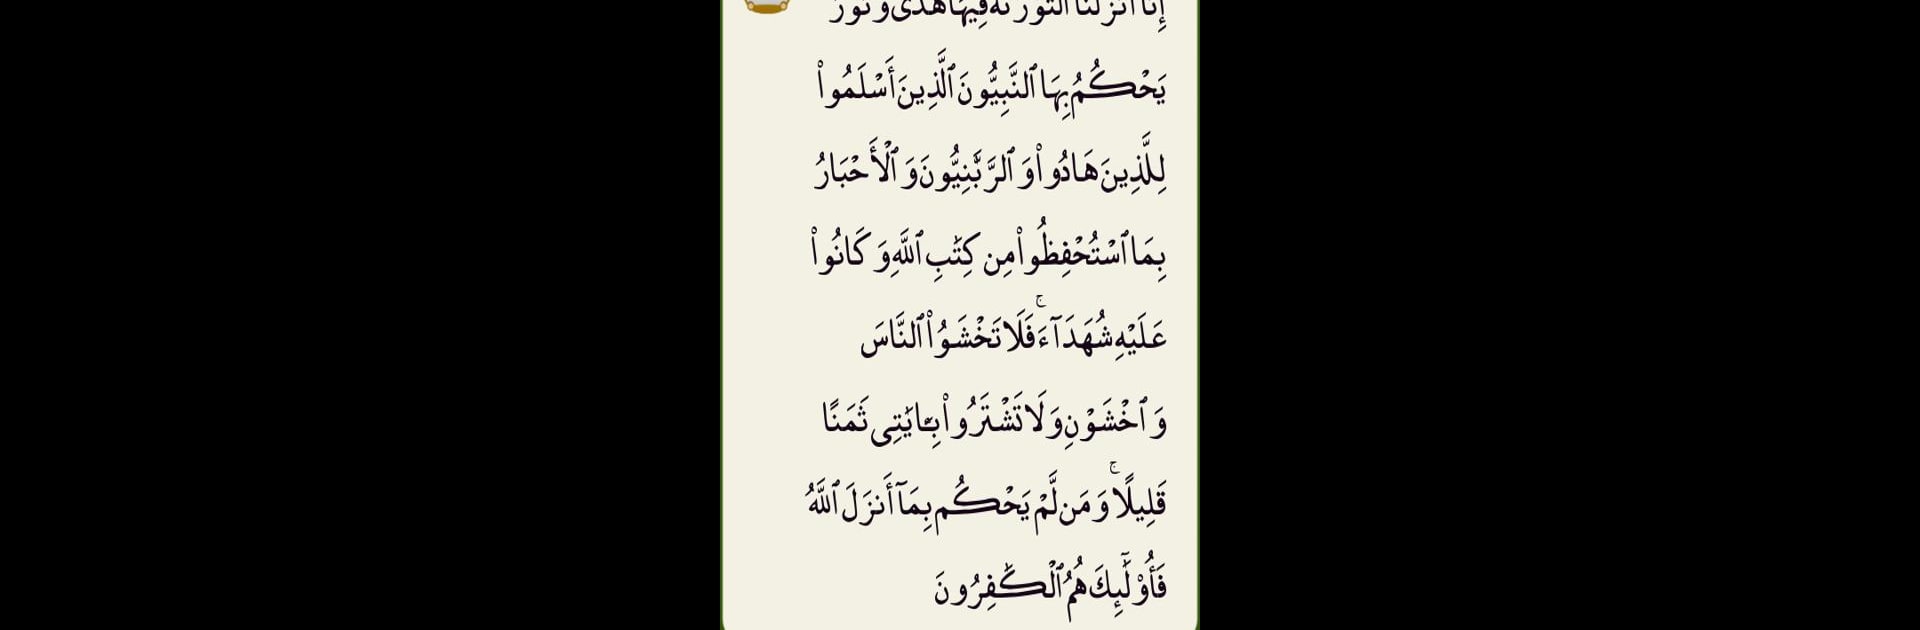 إِنَّآ أَنزَلْنَا ٱلتَّوْرَىٰةَ فِيهَا هُدًى وَنُورٌ
يَحْكُمُ بِهَا ٱلنَّبِيُّونَ ٱلَّذِينَ أَسْلَمُوا۟
لِلَّذِينَ هَادُوا۟ وَٱلرَّبَّٰنِيُّونَ وَٱلْأَحْبَارُ
بِمَا ٱسْتُحْفِظُوا۟ مِن كِتَٰبِ ٱللَّهِ وَكَانُوا۟
عَلَيْهِ شُهَدَآءَ ۚ فَلَا تَخْشَوُا۟ ٱلنَّاسَ
وَٱخْشَوْنِ وَلَا تَشْتَرُوا۟ بِـَٔايَٰتِى ثَمَنًا
قَلِيلًا ۚ وَمَن لَّمْ يَحْكُم بِمَآ أَنزَلَ ٱللَّهُ
فَأُو۟لَٰٓئِكَ هُمُ ٱلْكَٰفِرُونَ